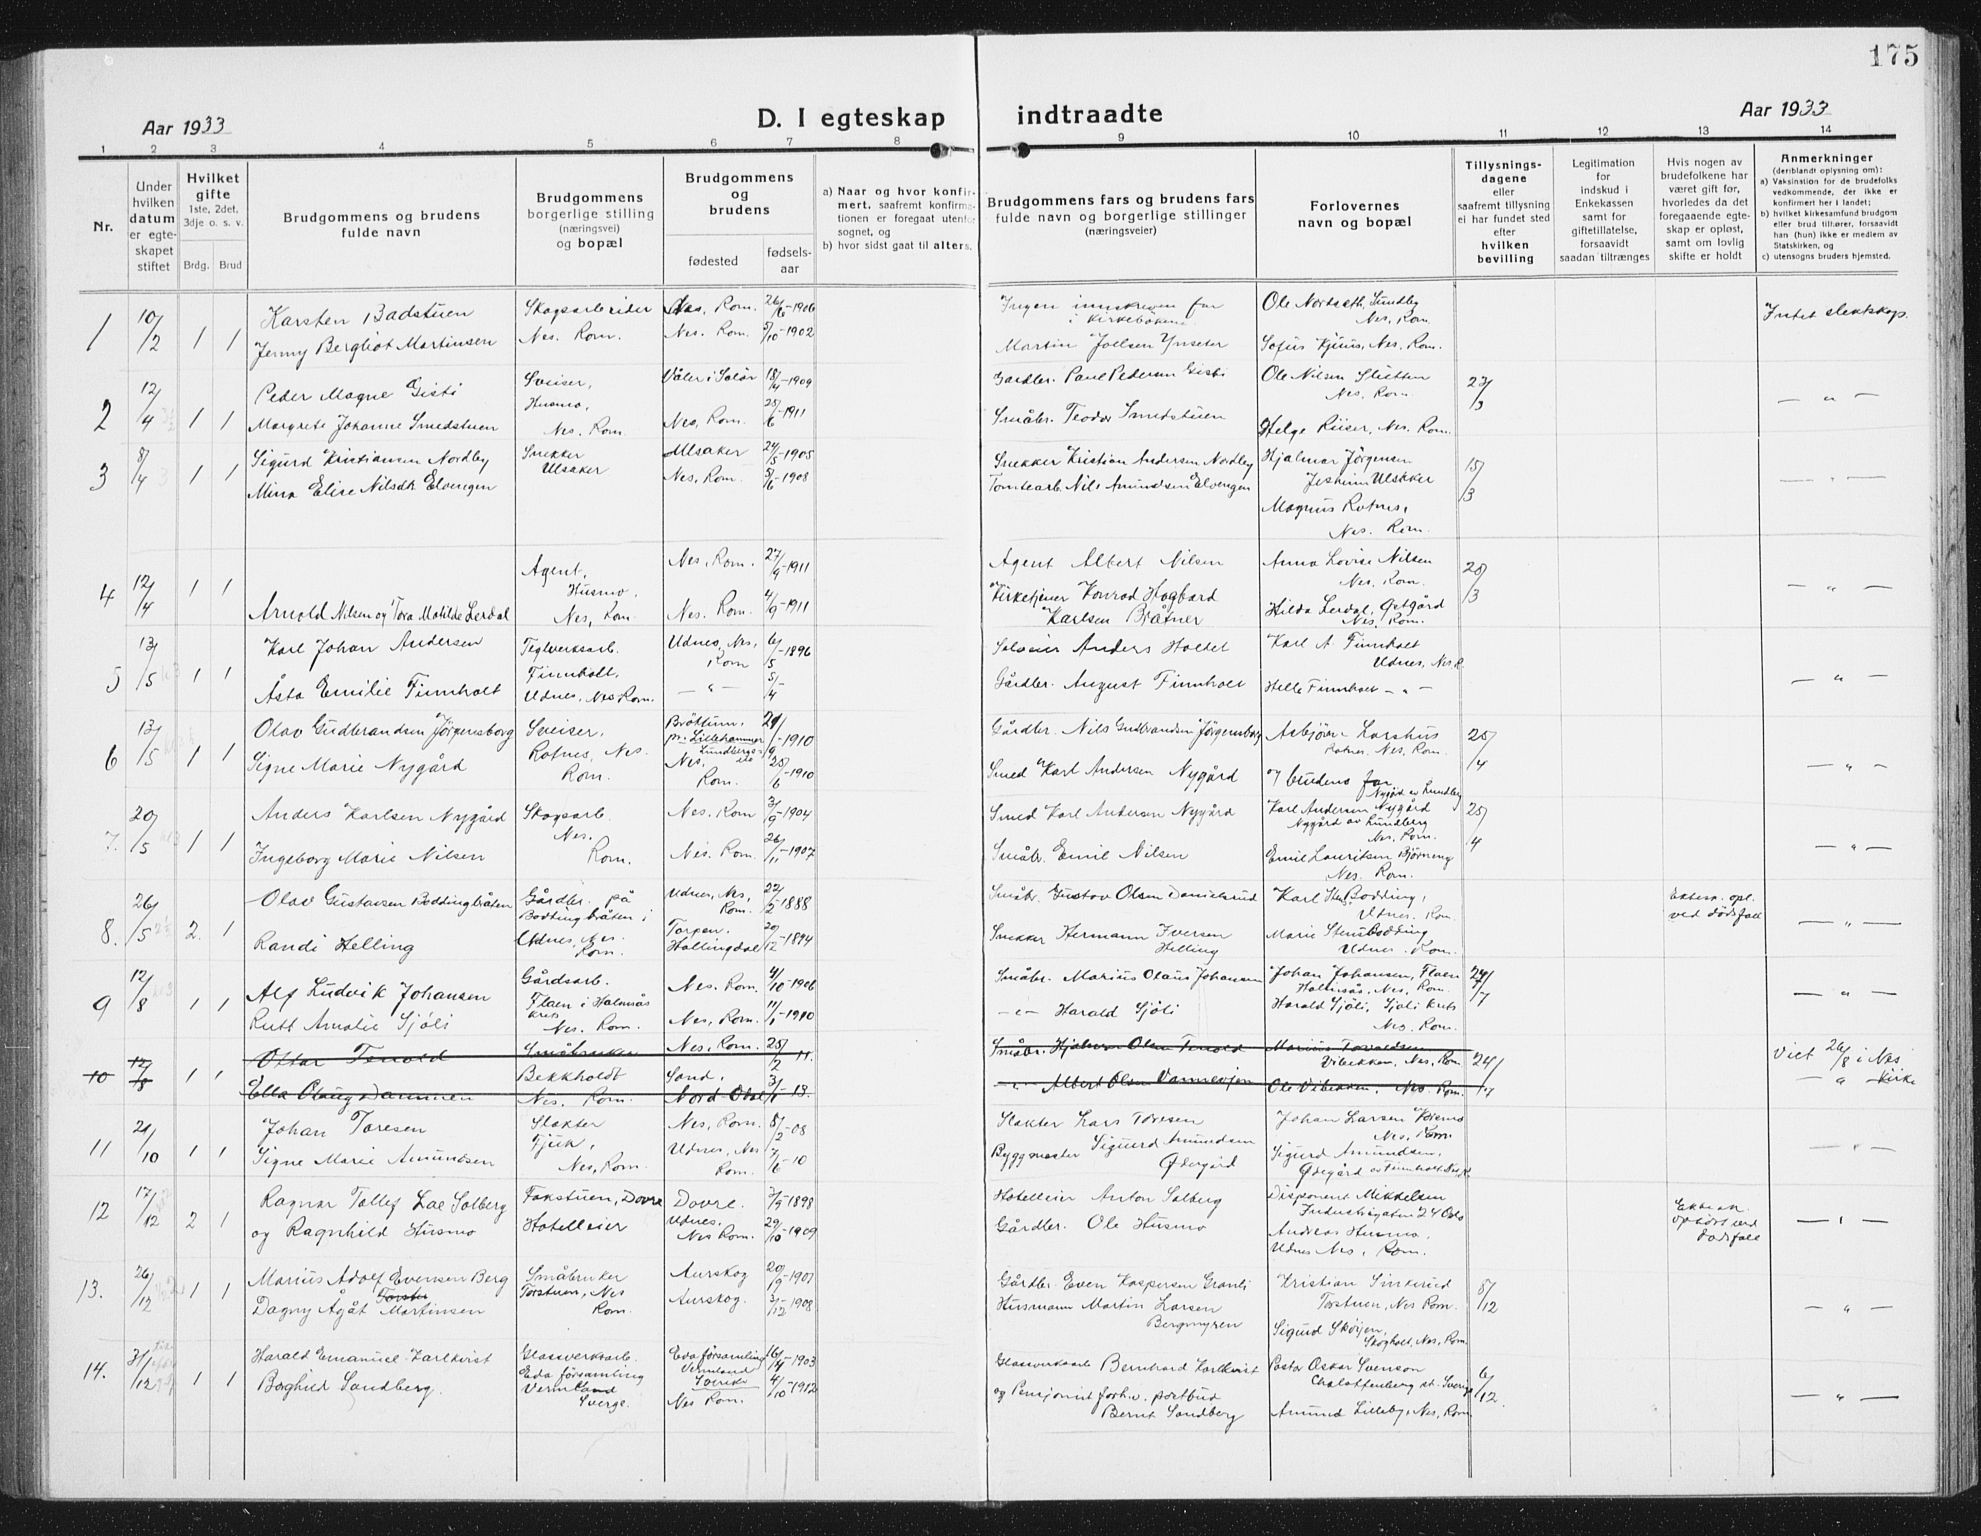 175
Aar 1933
D. I egteskap indtraadte
Aar 1933
1 2 3 4 5 6 7 8 9 10 11 12 13 14
Nr.
Under hvilken datum er egteskapet stiftet
Hvilket gifte
1ste, 2det, 3dje o. s. v.
Brdg. Brud
Brudgommens og brudens fulde navn
Brudgommens borgerlige stilling (næringsvei) og bopæl
Brudgommens og brudens
fødested
fødsels-aar
a) Naar og hvor konfirmert, saafremt konfirmationen er foregaat utenfor sognet, og
b) hvor sidst gaat til alters.
Brudgommens fars og brudens fars fulde navn og borgerlige stillinger (næringsveier)
Forlovernes navn og bopæl
Tillysningsdagene eller saafremt tillysning ei har fundet sted efter hvilken bevilling
Legitimation for indskud i Enkekassen samt for giftetillatelse, forsaavidt saadan tiltrænges
Hvis nogen av brudefolkene har været gift før, hvorledes da det foregaaende egteskap er opløst, samt om lovlig skifte er holdt
Anmerkninger
(deriblandt oplysning om):
a) Vaksination for de brudefolks vedkommende, der ikke er konfirmert her i landet;
b) hvilket kirkesamfund brudgom eller brud tilhører, forsaavidt han (hun) ikke er medlem av Statskirken, og
c) utensogns bruders hjemsted.
1 10/2 1 1
Karsten Badstuen
Jenny Bergliot Martinsen
Skogsarbeider
Nes. Rom.
Nes, Rom. 26/6-1906
Nes. Rom. 5/10-1902
Ingen innskreven far
i kirkebøkene.
Martin Joelsen Ynseter
Ole Nordseth, Sundby
Nes, Rom.
Sofus Kjuus, Nes, Rom.
Intet slektskap.
2 12/4 1 1
Peder Magne Gisti
Margrete Johanne Smedstuen
Sveiser,
Husmo,
Nes. Rom.
Våler i Solør 18/4-1909
Nes, Rom. 25/6-1911
Gardbr. Paul Pedersen Gisti
Småbr. Teodor Smedstuen
Ole Nilsen Sletten
Nes, Rom.
Helge Riiser, Nes, Rom.
23/3
— " —
3 8/4 1 1
Sigurd Kristiansen Nordby
Mina Elise Nilsdtr. Elvengen
Snekker
Ulsaker
Ulsaker 24/5-1905
Nes, Rom. 5/6-1908
Snekker Kristian Andersen Nordby
Tomtearb. Nils Amundsen Elvengen
Hjalmar Jörgensen
Jesheim Ulsaker
Magnus Rotnes,
Nes. Rom.
15/3
— " —
4 12/4 1 1
Arnold Nilsen og Tora Matilde Lerdal
Agent,
Husmo,
Nes, Rom.
Nes, Rom. 27/9-1911
Nes. Rom. 4/9-1911
Agent Albert Nilsen
Kirketjener Konrad Hagbard
Karlsen Bråtner
Anna Lovise Nilsen
Nes, Rom.
Hilda Lerdal, Østgård
Nes. Rom.
25/3
— " —
5 13/5 1 1
Karl Johan Andersen
Åsta Emilie Finnholt
Teglverksarb.
Finnholt,
Udnes, Nes Rom.
Udnes, Nes,
Rom 6/5-1896
— " — 5/4-
Anders Holtet
Gårdbr. August Finnholt
Karl A. Finnholt
Udnes, Nes R.
Helle Finnholt — " —
— " —
6 13/5 1 1
Olav Gudbrandsen Jörgensborg
Signe Marie Nygård
Sveiser,
Rotnes, Nes.
Rom.
Bröttum,
pr. Lillehammer
Lundbergs-
Nes,
Rom.
-1910
25/6-1910
Gårdbr. Nils Gudbrandsen Jörgensborg
Smed Karl Andersen Nygård
Asbjörn Lorshus
Rotnes, Nes, Rom.
og brudens far
Nygård av Lundberg
25/4
— " —
7. 20/5 1 1
Anders Karlsen Nygård
Ingeborg Marie Nilsen
Skogsarb.
Nes.
Rom.
Nes. Rom 3/9-1904
Nes. Rom. 26/11-1907
Smed Karl Andersen Nygård
Småbr. Emil Nilsen
Karl Andersen Nygård
Nygård av Lundberg
Nes, Rom.
Emil Lauritsen Björneng
Nes. Rom.
25/4
— " —
8. 26/5 2. 1
Olav Gustavsen Boddingbråten
Randi Helling
Gårdbr. på
Bodtingbråten i
Udnes, Nes.
Rom.
Udnes, Nes,
Rom. 22/2-1888
Torpen,
Hallingdal 20/12-1894
Småbr. Gustav Olsen Danielsrud
Snekker Hermann Iversen
Helling
Karl Bodding,
Udnes. Rom.
Marie Bodding
Udnes. Rom.
Ektesk. opl.
ved dödsfall
— " —
9 12/8 1 1
Alf Ludvik Johansen
Rutt Amalie Sjöli
Gårdsarb.
Flaen i Holmsås
krets
Nes. Rom.
Nes. Rom. 4/10-1906
Nes, Rom. 11/1-1910
Småbr. Marius Olaus Johansen
— " — Harald Sjöli
Johan Johansen, Flaen
Holmsås, Nes, Rom.
Harald Sjöli, Sjöli krets
Nes. Rom.
24/7
— " —
10 12/8 1 1
Ottar Tenold
Ella Olaug Dammen
Småbruker
Bekkholdt
Nes. Rom.
Nes, Rom. 25/2 11.
Sand,
Nord-Odal 3/1-13.
Småbr. Hjalmar Olsen Tenold
— " — Albert Olsen Vannevjen
Marius Torvaldsen
Vibekken, Nes, Rom.
Ole Vibekken, Nes. Rom.
24/7
Viet 26/8 i Nes
— " — kirke
11 21/10 1 1
Johan Toresen
Signe Marie Amundsen
Slakter
Fjuk,
Nes, Rom.
Nes, Rom. 5/2-08
Udnes, Nes
Rom. 7/6-10
Slakter Lars Toresen
Byggmester Sigurd Amundsen
Ödegård
Johan Larsen
Nes, Rom.
Sigurd Amundsen,
Ödegård av Finnholt Nes R.
— " —
12 17/12 2 1
Ragnar Tollef Lae Solberg
og Ragnhild Husmo
Fokstuen, Dovre
Hotelleier
Dovre. 3/9-1898
Udnes.
Nes Rom. 29/10-1909
Hotelleier Anton Solberg
Gårdbr. Ole Husmo
Disponent Mikkelsen
Industrigaten 24 Oslo
Andreas Husmo,
Udnes Nes, Rom.
Ektesk.
ophört ved
dödsfall
— " —
13. 26/12 1 1
Marius Adolf Evensen Berg
Dagny Ågåt Martinsen
Småbruker
Torstuen, Nes
Rom.
Aurskog 20/9-1907
Aurskog. 3/12-1908
Gårdbr. Even Kaspersen Granli
Husmann Martin Larsen
Bergmyren
Kristian Sinkerud
Torstuen, Nes Rom.
Sigurd Sköien,
Skogholt, Nes, Rom.
8/12
— " —
14. 31/12 1 1
Harald Emanuel Karlkvist
Borghild Sandberg.
Glassverksarb.
Eda församling
Vermland
Sverge.
Eda församling
Vermland
Sverike 16/4-1903
Nes Rom. 4/10-1912
Glassverksarb Bernhard Karlkvist
og Pensjonist forhv. postbud
Bernt Sandberg
Oskar Svenson
Charlottenberg st. Sverige
Amund Lilleby, Nes, Rom.
6/12
— " —